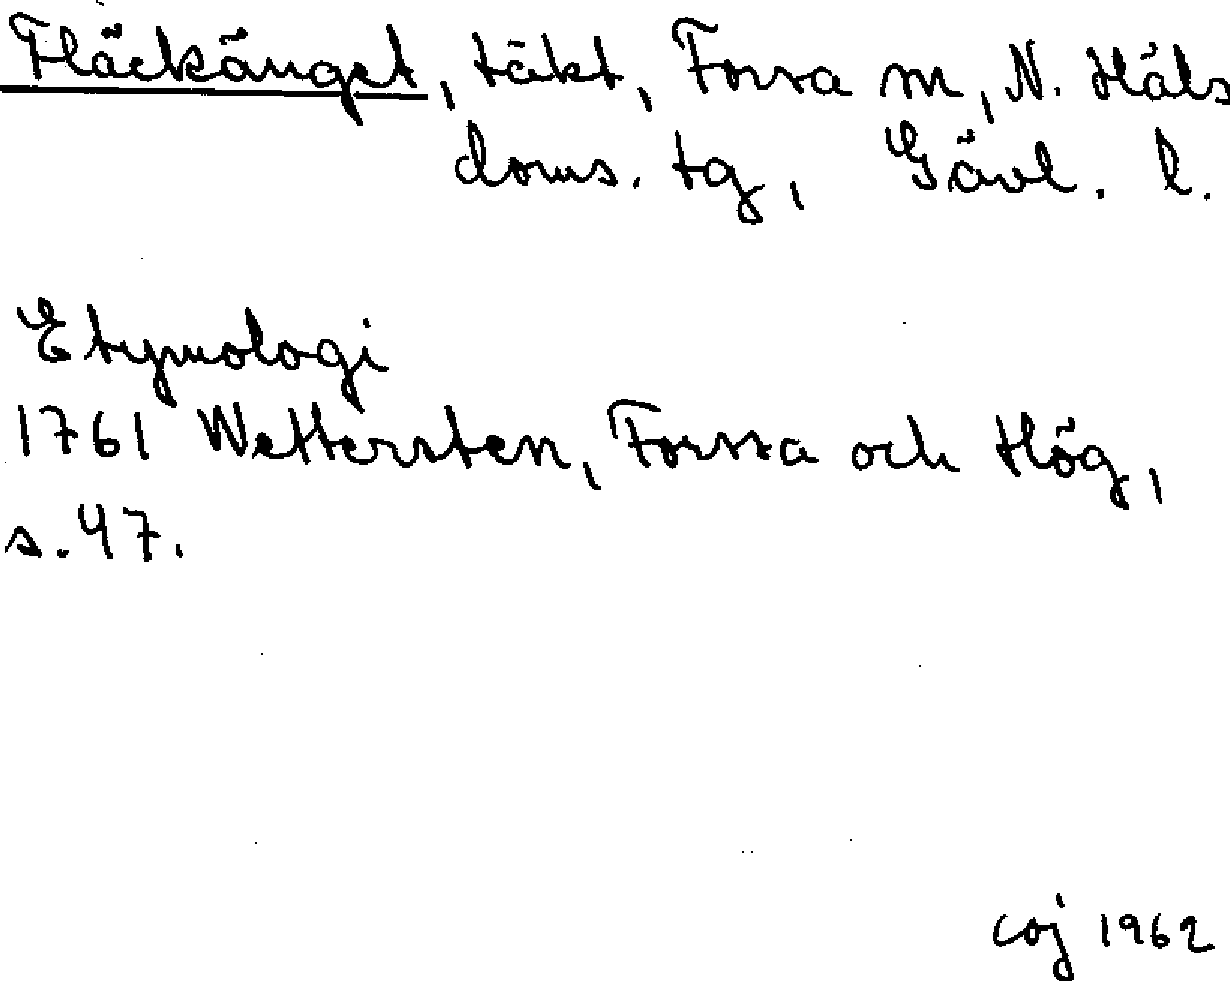 Fläckänget, täkt, Forsa sn, N. Häls
doms. tg, Gävl. l.
Etymologi
1761 Wettersten, Forssa och Hög,
s. 47.
coj 1962